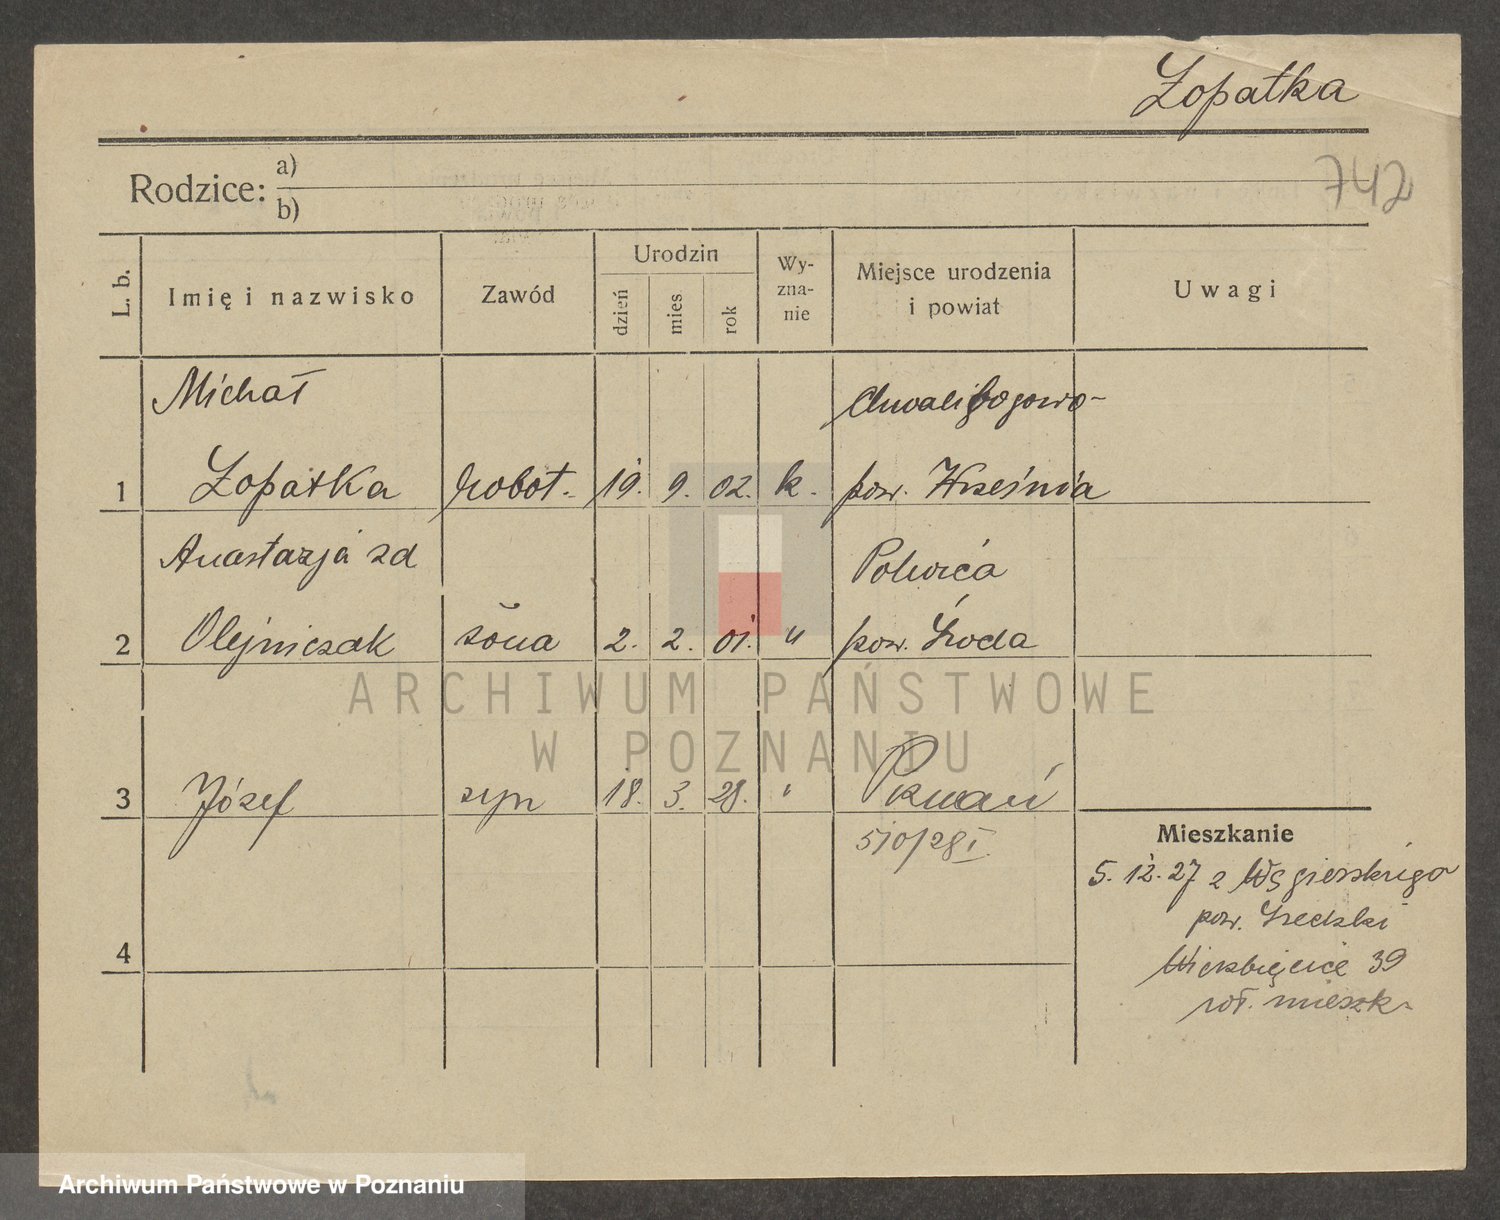 Łopatka
742
Rodzice: a)
b)
L. b.
Imię i nazwisko
Zawód
Urodzin
dzień
mies
rok
Wy-
zna-
nie
Miejsce urodzenia
i powiat
Uwagi
Michał
Chwalibogowo
1 Łopatka robot. 19. 9. 02. k. pow. Września
Anastazja zd Polwica
2 Olejniczak żona 2. 2. 01. " pow. Środa
3 Józef syn 18. 3. 28. " Poznań
510/28 I.
Mieszkanie
5. 12. 27 z Węgierskiego
pow. Średzki
4
Wierzbięcice 39
mieszk.
ARCHIWUM PAŃSTWOWE
W POZNANIU
Archiwum Państwowe w Poznaniu